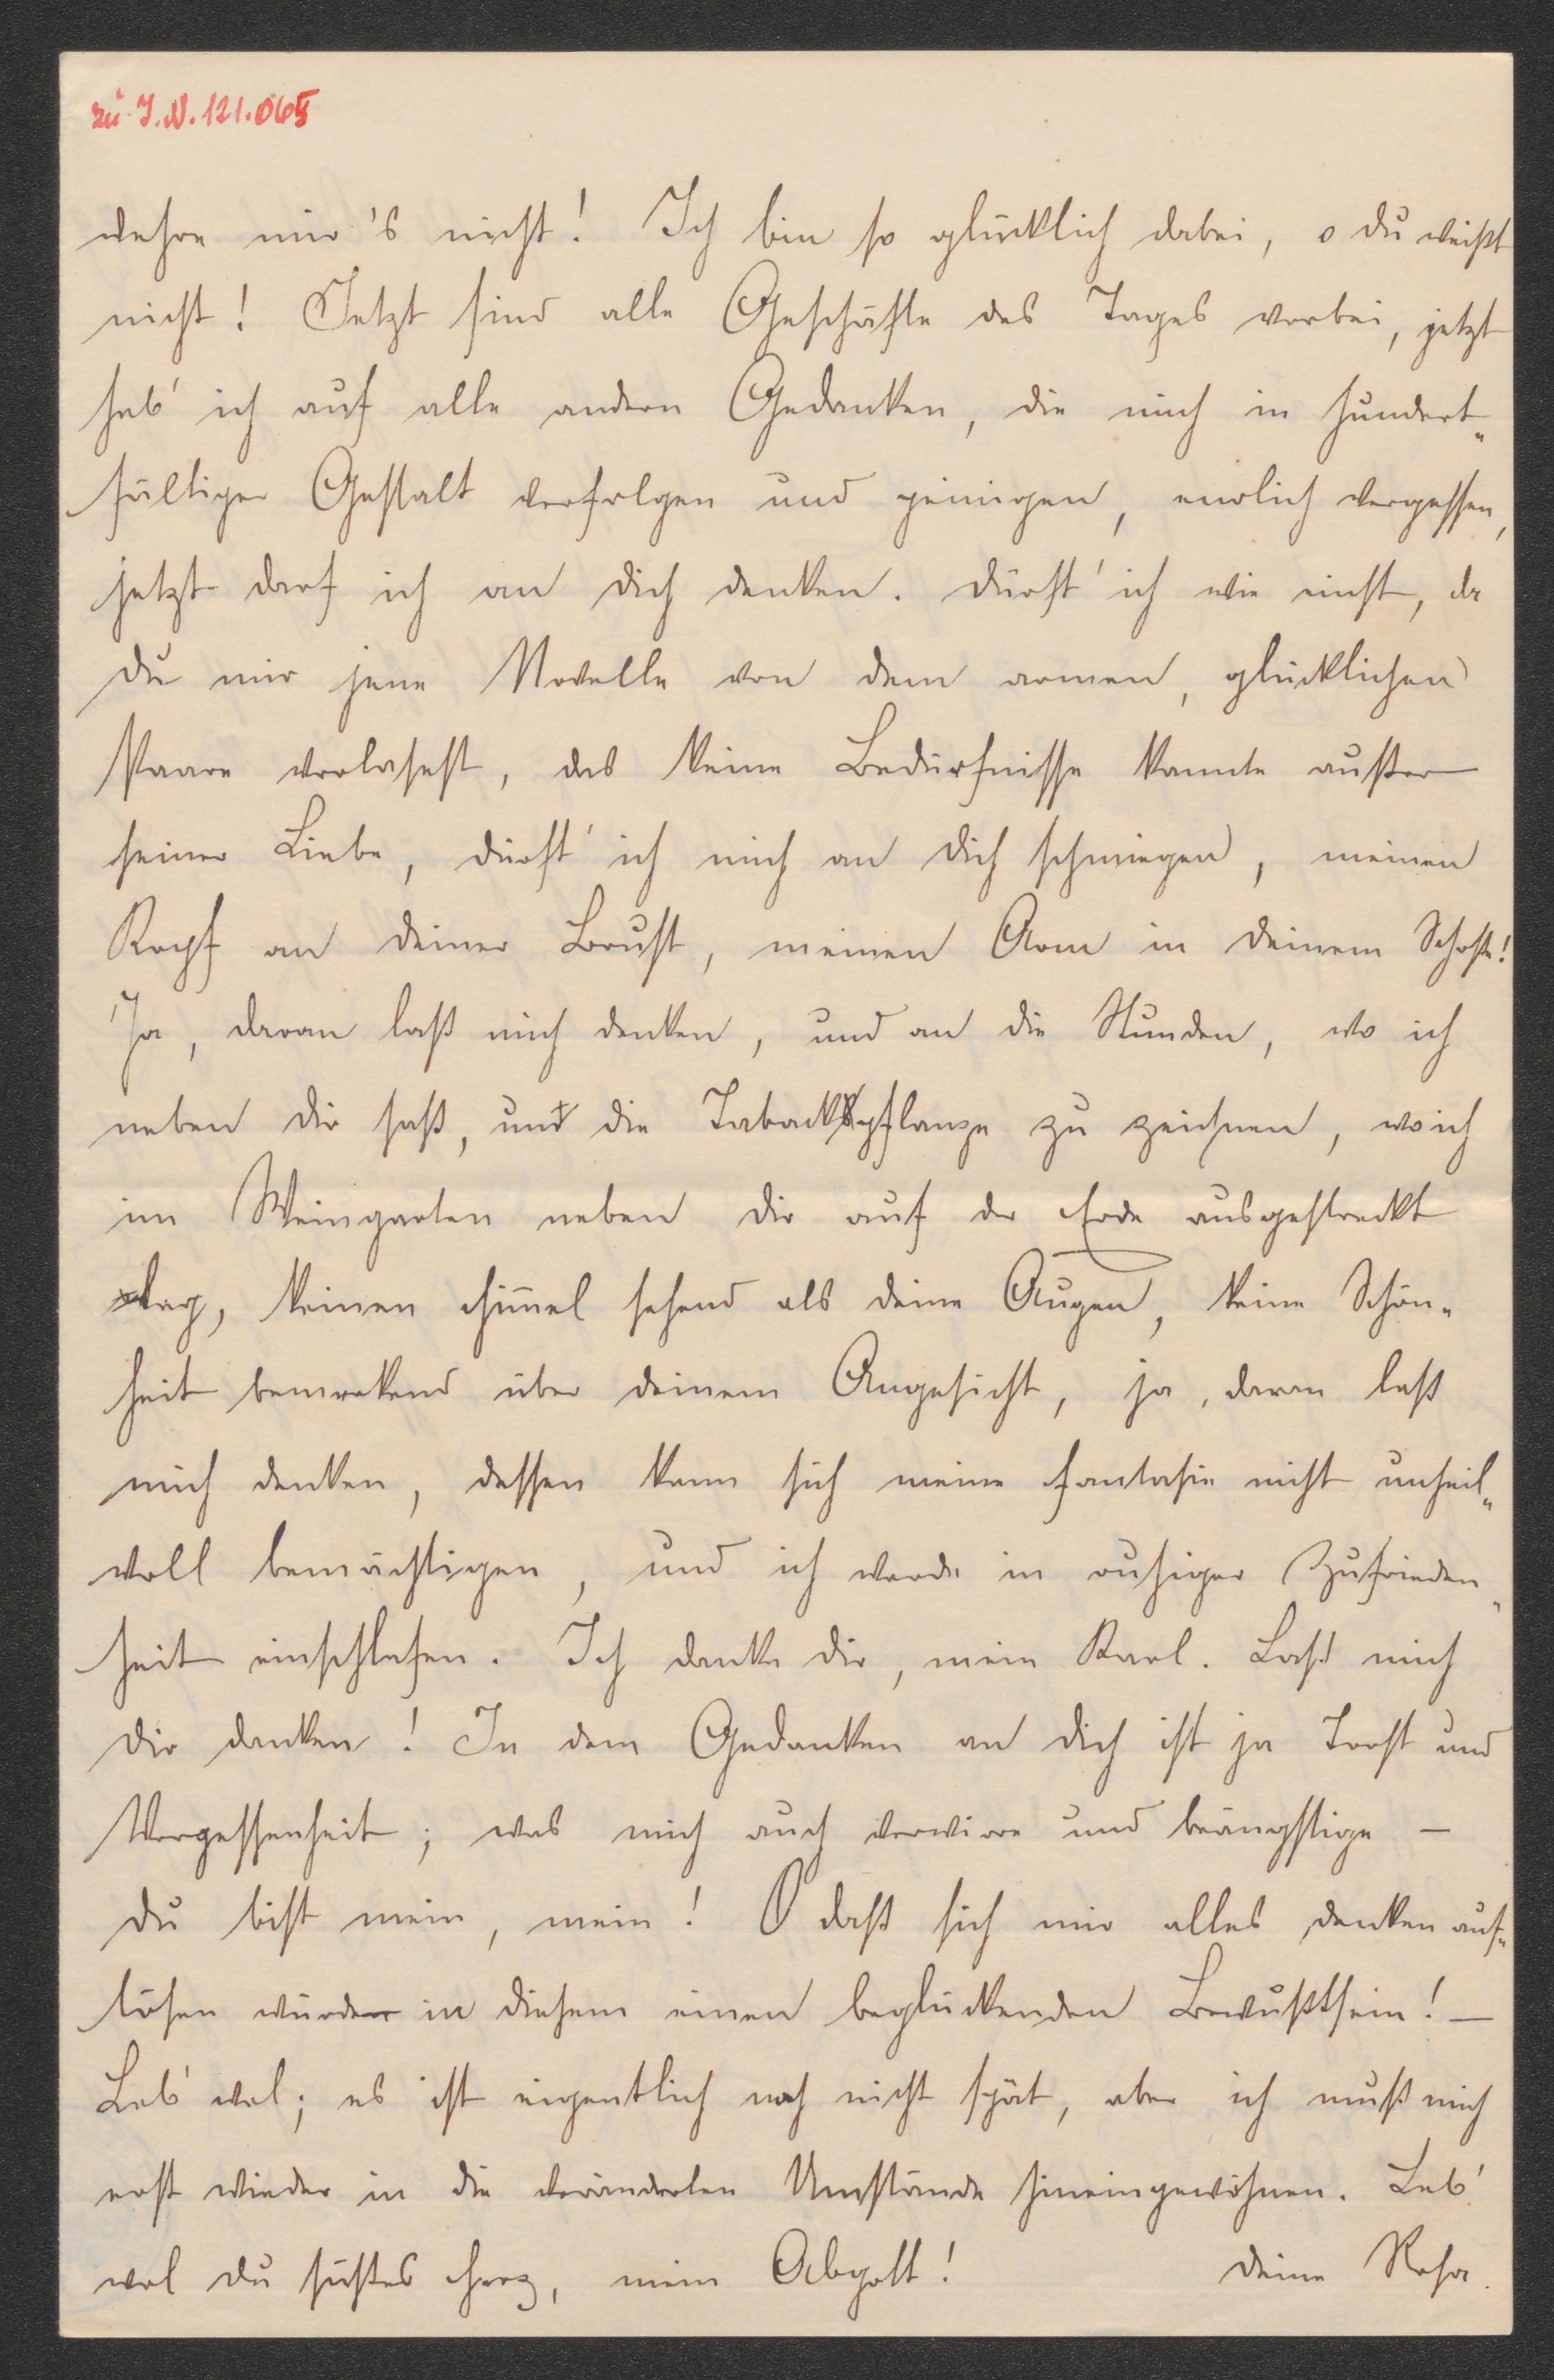 zu J.N. 121.065
wehre mir's nicht! Ich bin so glücklich dabei, o du weißt
nicht! Jetzt sind alle Geschäfte des Tages vorbei, jetzt
hab' ich auf alle andern Gedanken, die mich in hundert„
fältiger Gestalt verfolgen und peinigen, endlich vergessen,
jetzt darf ich an dich denken. Dürft' ich wie einst, da
du mir jene Novelle von dem armen, glücklichen
Paare vorlasest, das keine Bedürfnisse kannte außer
seiner Liebe, dürft' ich mich an dich schmiegen, meinen
Kopf an deiner Brust, meinen Arm in deinem Schoße!
Ja, daran laß mich denken, und an die Stunden, wo ich
neben dir saß, und die Tabackspflanze zu zeichnen, wo ich
im Weingarten neben dir auf der Erde ausgestreckt
lag, keinen Him̄el sehend als deine Augen, keine Schön„
heit bemerkend über deinem Angesicht, ja, daran laß
mich denken, dessen kann sich meine Fantasie nicht unheil„
voll bemächtigen, und ich werde in ruhiger Zufrieden„
heit einschlafen. Ich danke dir, mein Karl. Laß mich
dir danken! In dem Gedanken an dich ist ja Trost und
Vergessenheit; was mich auch verwirre und beängstige –
du bist mein, mein! O daß sich mir alles denken auf„
lösen würde in diesem einen beglückenden Bewußtsein! –
Leb' wol; es ist eigentlich noch nicht spät, aber ich muß mich
erst wieder in die veränderten Umstände hineingewöhnen. Leb'
wol du süßes Herz, mein Abgott! Deine Rosa.